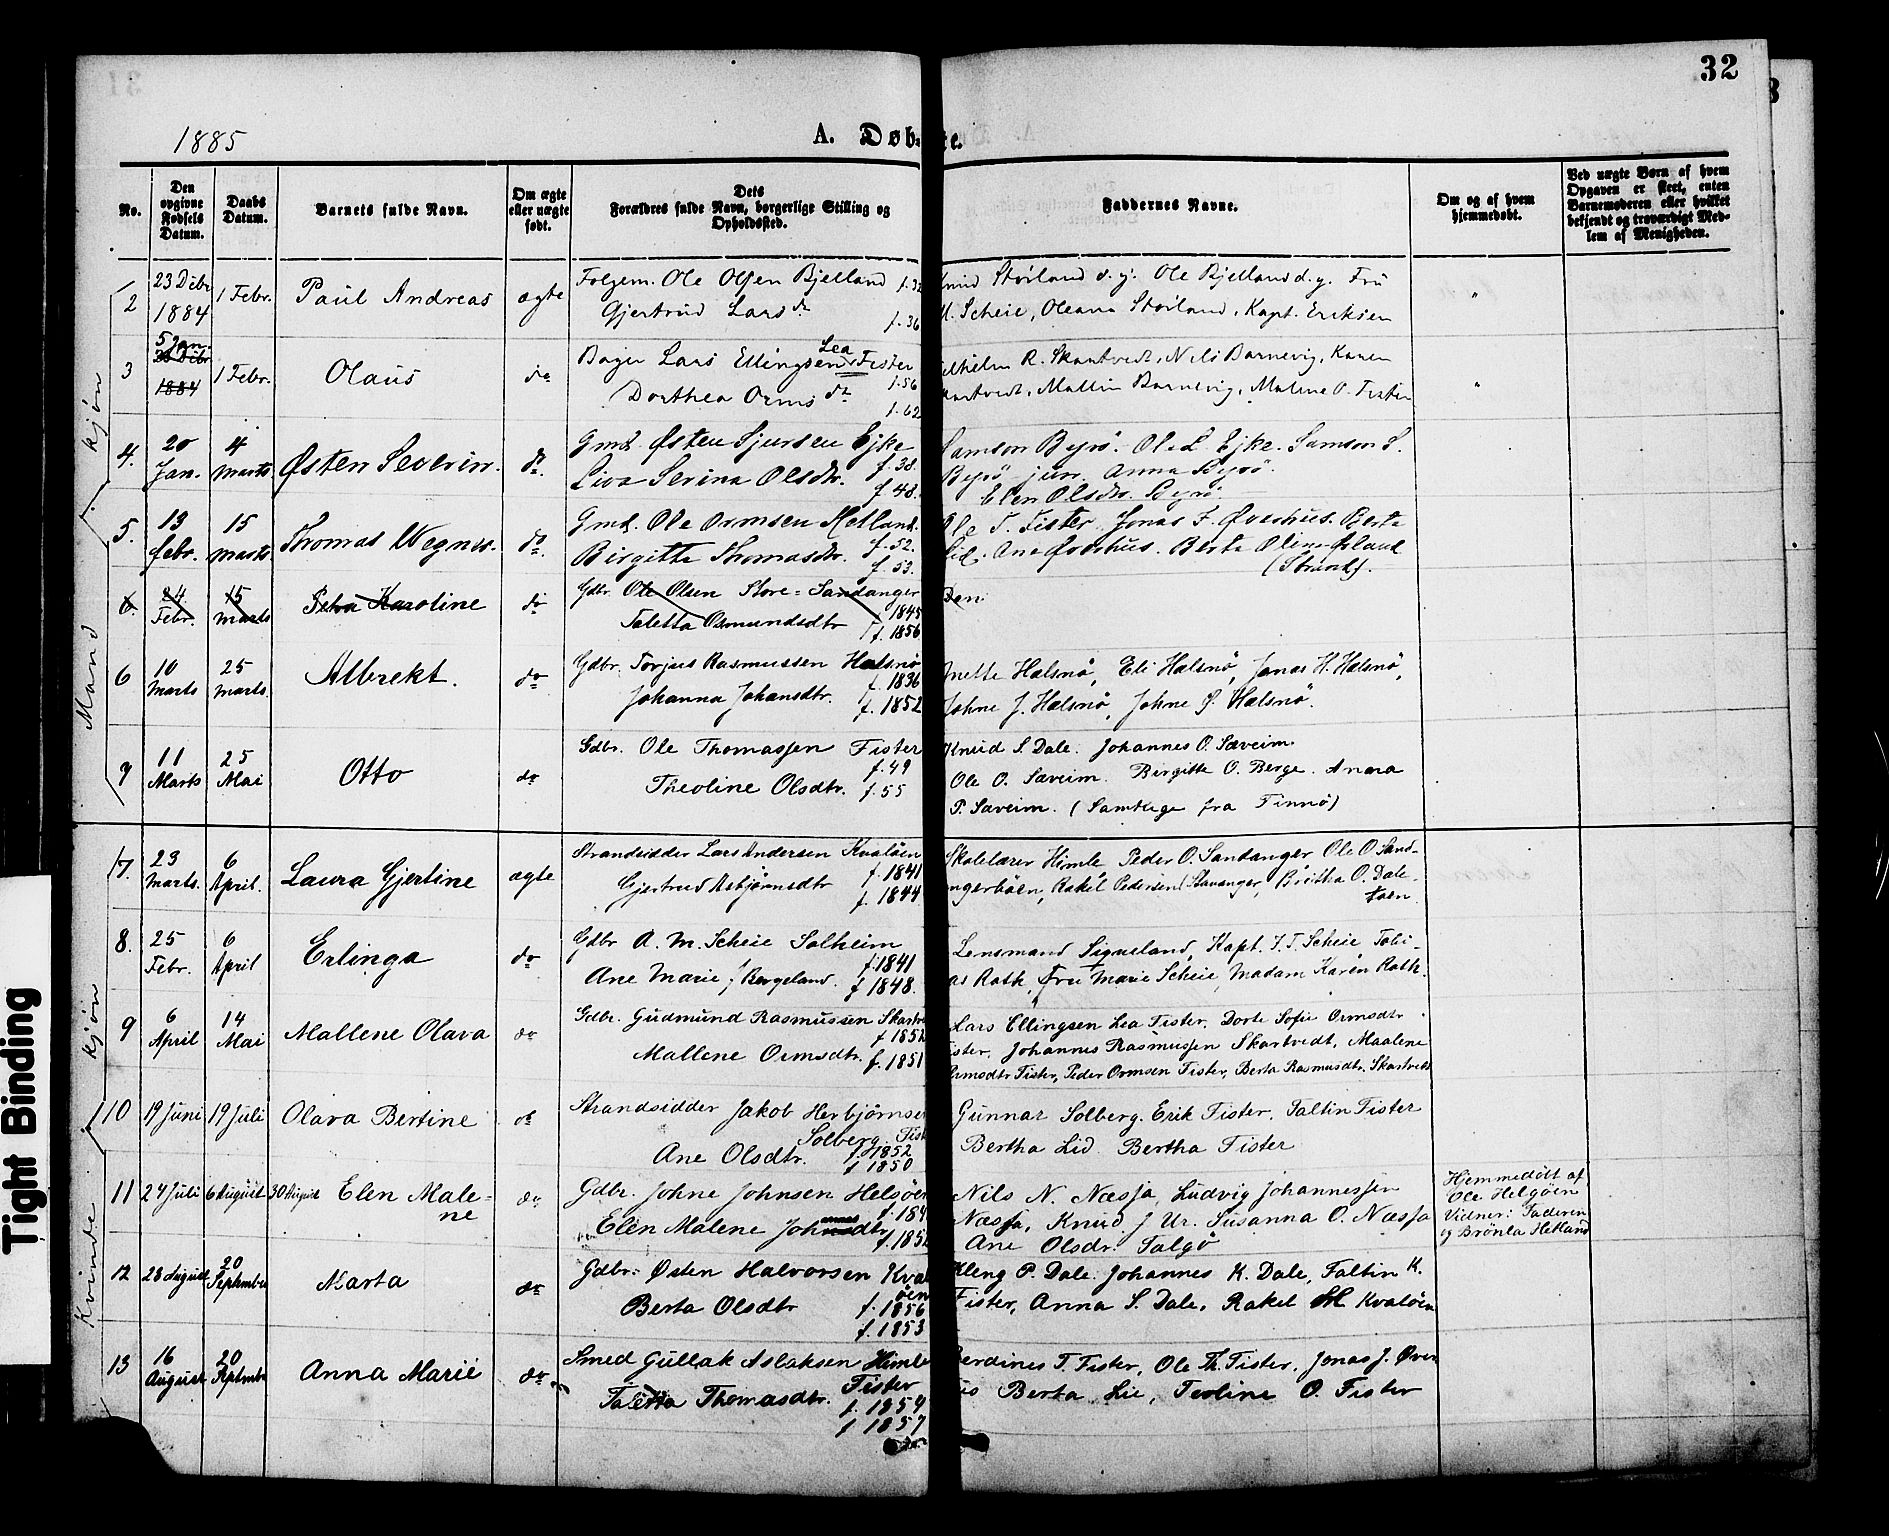 32
1885
A. Døb- te.
No.
Den opgivne Fødsels Datum.
Daabs Datum.
Barnets fulde Navn.
Om ægte eller uægte født.
Dets Forældres fulde Navn, borgerlige Stilling og Opholdssted.
Faddernes Navne.
Om og af hvem hjemmedøbt.
Ved uægte Børn af hvem Opgaven er skeet, enten Barnemoderen eller hvilket bekjendt og troværdigt Medlem af Menigheden.
Mand kjøn
2 23 Dcbr 1884 1 Febr. Paul Andreas ægte Folgem. Ole Olsen Bjelland f. Ole Bjelland d.y. Fru
Gjertrud Lars dr f. 36 Scheie, Oleana Storland, Kapt. Eriksen "
3 5 Jan. 1884 1 Febr. Olaus do Lars Ellingsen Lea Fister f. 56 R. Skartvedt, Nils Barnevig, Karen
Dorthea Orms dr f. 62 Mallin Barnevig, Malene O. Fister "
4. 20 Jan. 4 Marts Østen Severin. do. Gmd. Østen Sjursen Ejke f. 38. Samson Byrö. Ole L. Ejke. Samson S.
Liva Serina Olsdtr. f. 48. Byrö junr. Anna Byrö.
Elen Olsdtr. Byrö.
5. 13 Febr. 15 Marts Thomas Wegner. do. Gmd. Ole Ormsen Hetland. f. 52. Ole T. Fister. Jonas J. Øverhus. Berta
Birgitte Thomasdtr. f. 53. Lid. Ane Øverhus. Berte Oline
(Strand).
6. 24 Febr. 15 Marts Petra Karoline do Gdbr. Ole Olsen Store-Sandanger f. 1845
Taletta Osmundsdtr f. 1856
6 10 Marts 25 Marts. Albrekt. do Gdbr. Torjus Rasmussen Halsnö f. 1836 Anette Halsnö, Eli Halsnö, Jonas H. Halsnö,
Johanna Johansdtr. f. 1852 Johne J. Halsnö, Johne P. Halsnö.
7 11 Marts 25 Mai Otto do Gdbr. Ole Thomassen Fister f. 49 Knud S. Dale. Johannes O. Sæveim.
Theoline Olsdtr. f. 55 Ole O. Sæveim. Birgitte O. Berge. Anna
P. Sæveim. (Samtlige fra Finnö)
Kvinde kjøn
7. 23 Marts. 6 April. Laura Gjertine ægte Strandsidder Lars Andersen Kvalöen f. 1841 Skolelærer Himle Peder O. Sandanger Ole O. Sand-
Gjertrud Asbjørnsdtr f. 1844 angerböen, Rakel Pedersen (Stavanger, Britha O. Dale-
toen.
8. 25 Febr. 6 April Erlinga do Gdbr A. M. Scheie Solheim f. 1841 Lensmand Sigveland, Kapt. T. T. Scheie Tobi-
Ane Marie f. Bergeland. f. 1848. as Rath, Fru Marie Scheie, Madam Karen Rath.
9 6 April 14 Mai Mallene Olava do Gdbr. Gudmund Rasmussen Skartve f. 1852 Lars Ellingsen Lea Fister. Dorte Sofie Ormsdtr
Mallene Ormsdtr. f. 1851 Fister, Johannes Rasmussen Skartvedt, Maalene
Ormsdtr Fister, Peder Ormsen Fister, Berta Rasmusdtr. Skartvedt
10 19 Juni 19 Juli Olava Bertine do Strandsidder Jakob Herbjörnsen Gunnar Solberg. Erik Fister. Faltin Fister
Solberg. Fist f. 1852
Ane Olsdtr. f 1850 Bertha Lid Bertha Fister
11 24 Juli 6 August 30 August Elen Male-ne do Gdbr. Johne Johnsen Helgöen f. 184 Nils N. Næsja, Ludvig Johannessen
Elen Malene Johannesdtr f. 185 Næssa, Knud J Ur. Susanna O. Næsja
Ane Olsdr. Talgö
Hemmedöbt af
Ole Helgöen
Vidner: Faderen
og Brönla Hetland
12 28 August 20 September Marta do Gdbr. Østen Halvorsen Kval-öen f. 1856 Kleng P. Dale. Johannes K. Dale, Faltin K.
Berta Olsdtr f. 1853 Fister, Anna S. Dale, Rakel Kvalöen
13 16 August 20 Septmbr Anna Marie do Smed Gullak Aslaksen Himle Fister f. 1854 Berdines T. Fister, Ole Th. Fister, Jonas J. Øver
Taletta Thomasdtr. f 1857 Berta Lie, Teoline O. Fister
Tight Binding